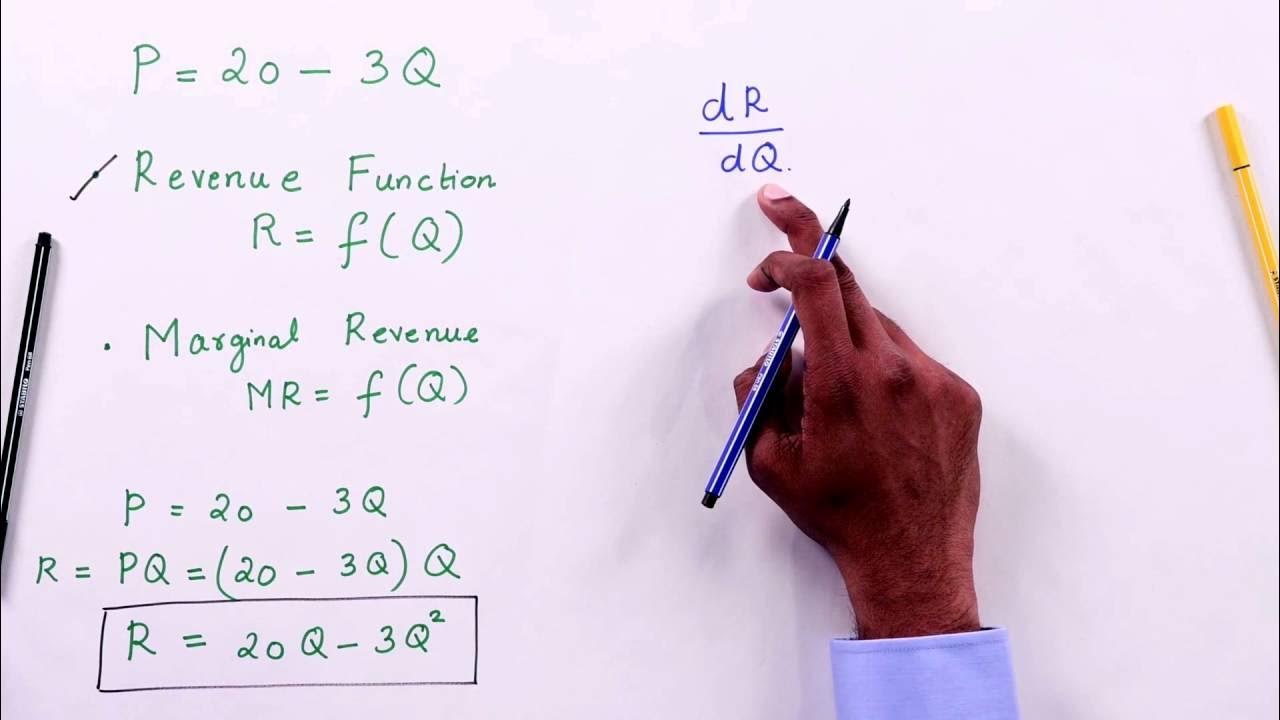 P = 20 - 3Q
Revenue Function
R = f(Q)
. Marginal Revenue
MR = f(Q)
P = 20 - 3Q
R = PQ = (20 - 3Q) Q
R = 20Q - 3Q²
dR
dQ.
STABILO